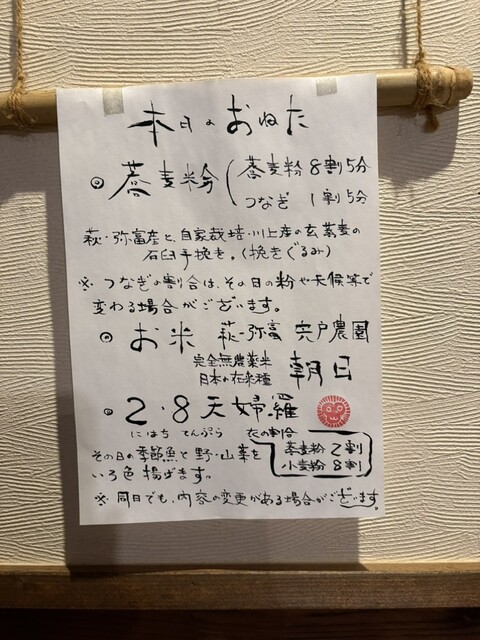 本日のおねた
◎ 蕎麦粉 ( 蕎麦粉 8割5分
つなぎ 1割5分
萩・弥富産と、自家栽培・川上産の玄蕎麦の
石臼手挽き。(挽きぐるみ)
※ つなぎの割合は、その日の粉や天候等で
変わる場合がございます。
◎ お米 萩-弥富 宍戸農園
完全無農薬米
日本の在来種 朝日
◎ 2・8天婦羅
にはち てんぷら 衣の割合
蕎麦粉 2割
小麦粉 8割
その日の季節魚と野・山菜を
いろ色揚げます。
※ 同日でも、内容の変更がある場合がございます。